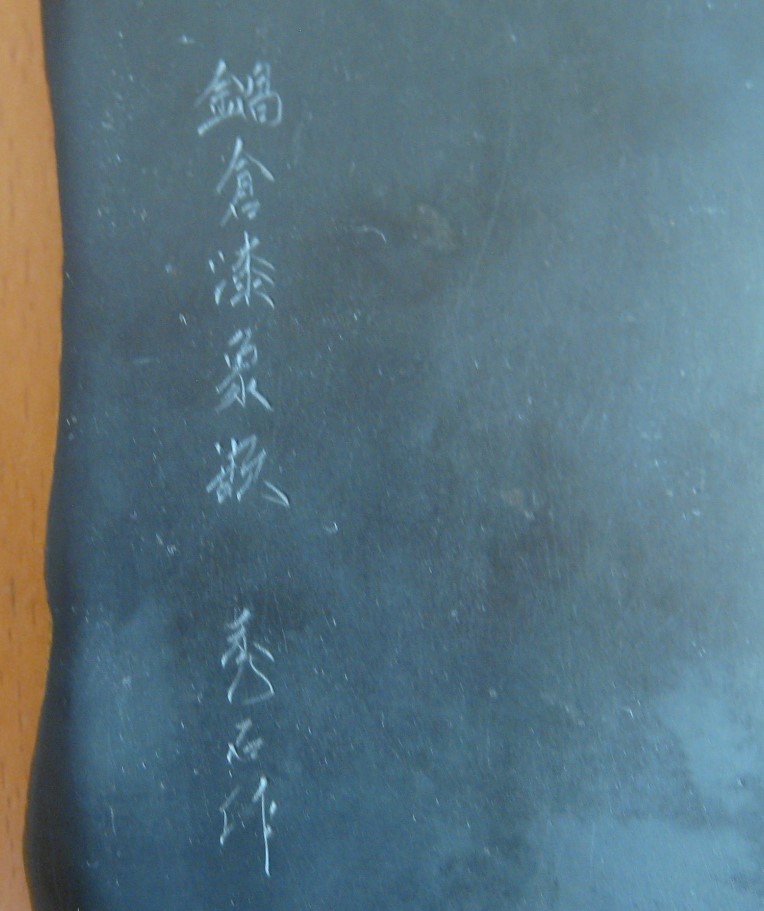 鍋倉漆象嵌 秀石作